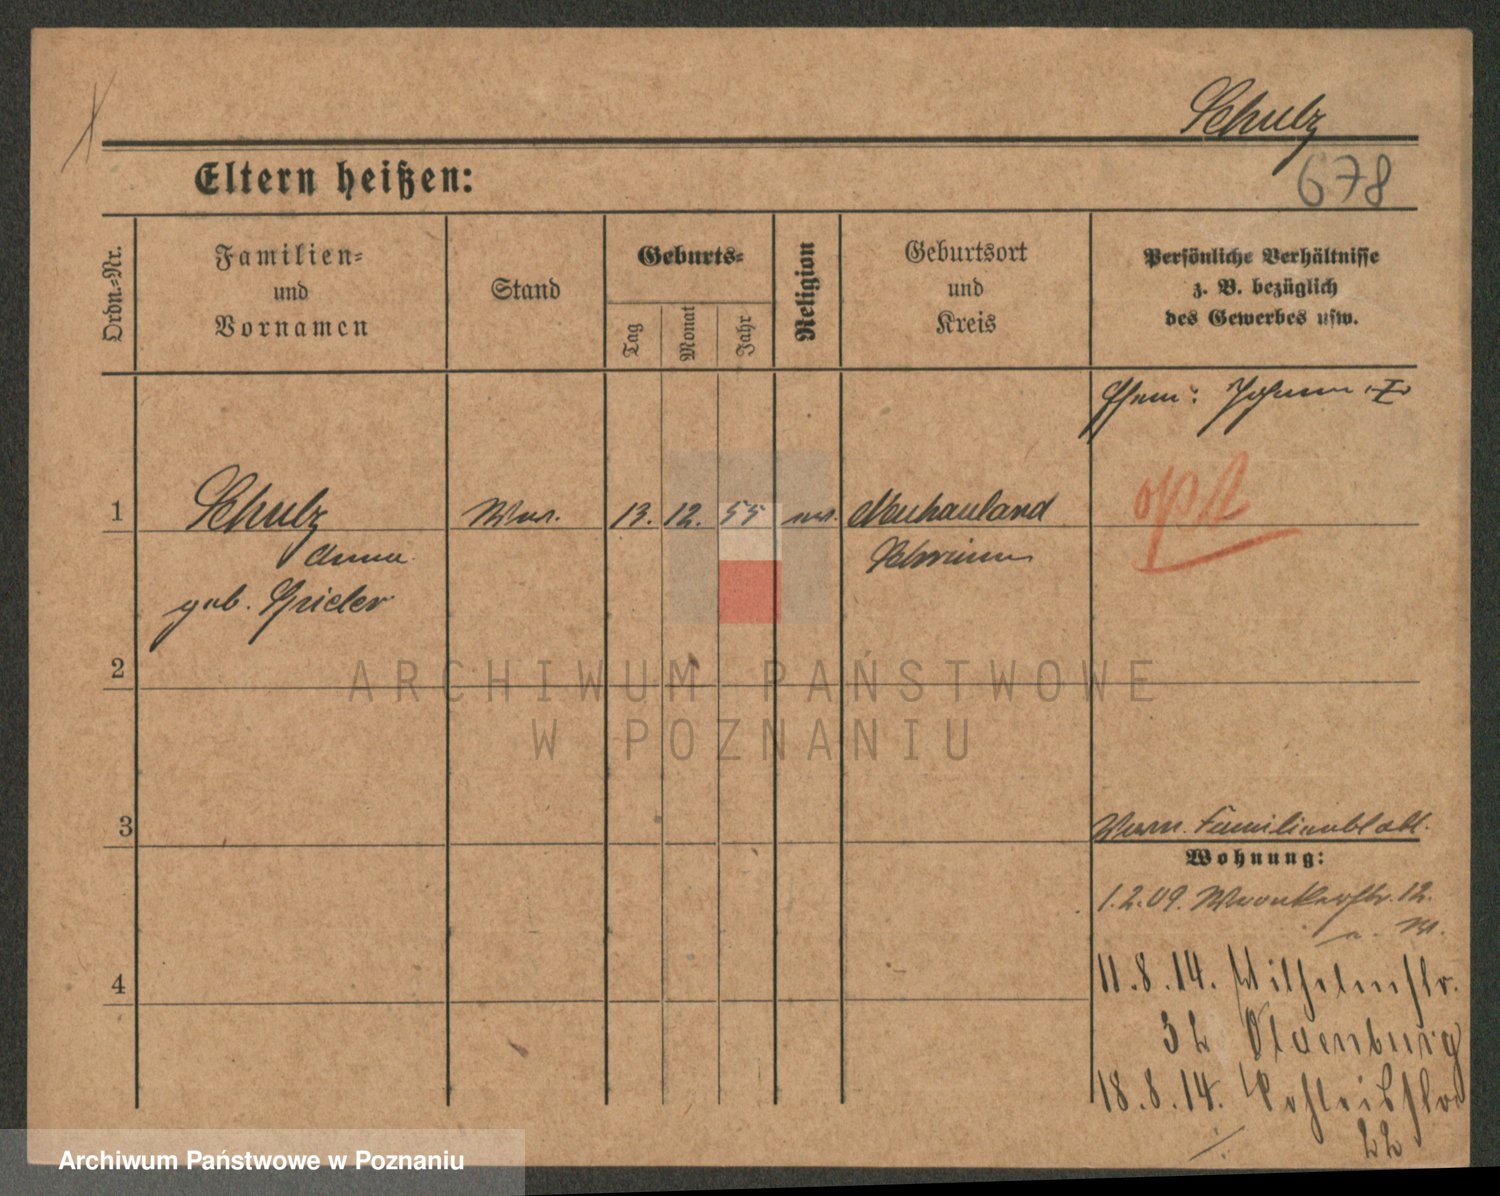 Schulz
Eltern heißen:
678
Ordn.-Nr.
Familien-
und
Vornamen
Stand
Geburts-
Tag
Monat
Jahr
Religion
Geburtsort
und
Kreis
Persönliche Verhältnisse
z. B. bezüglich
des Gewerbes usw.
Ehem: Johann
1
Schulz
Wwe.
13. 12. 55
Neuhauland
Schwerin
Anna
geb. Spieler
2
3
4
Familienblatt.
Wohnung:
1.2.09. Wronkerstr. 12.
11.8.14. Wilhelmstr.
32 Oldenburg
18.8.14.
22
ARCHIWUM PAŃSTWOWE
W POZNANIU
Archiwum Państwowe w Poznaniu